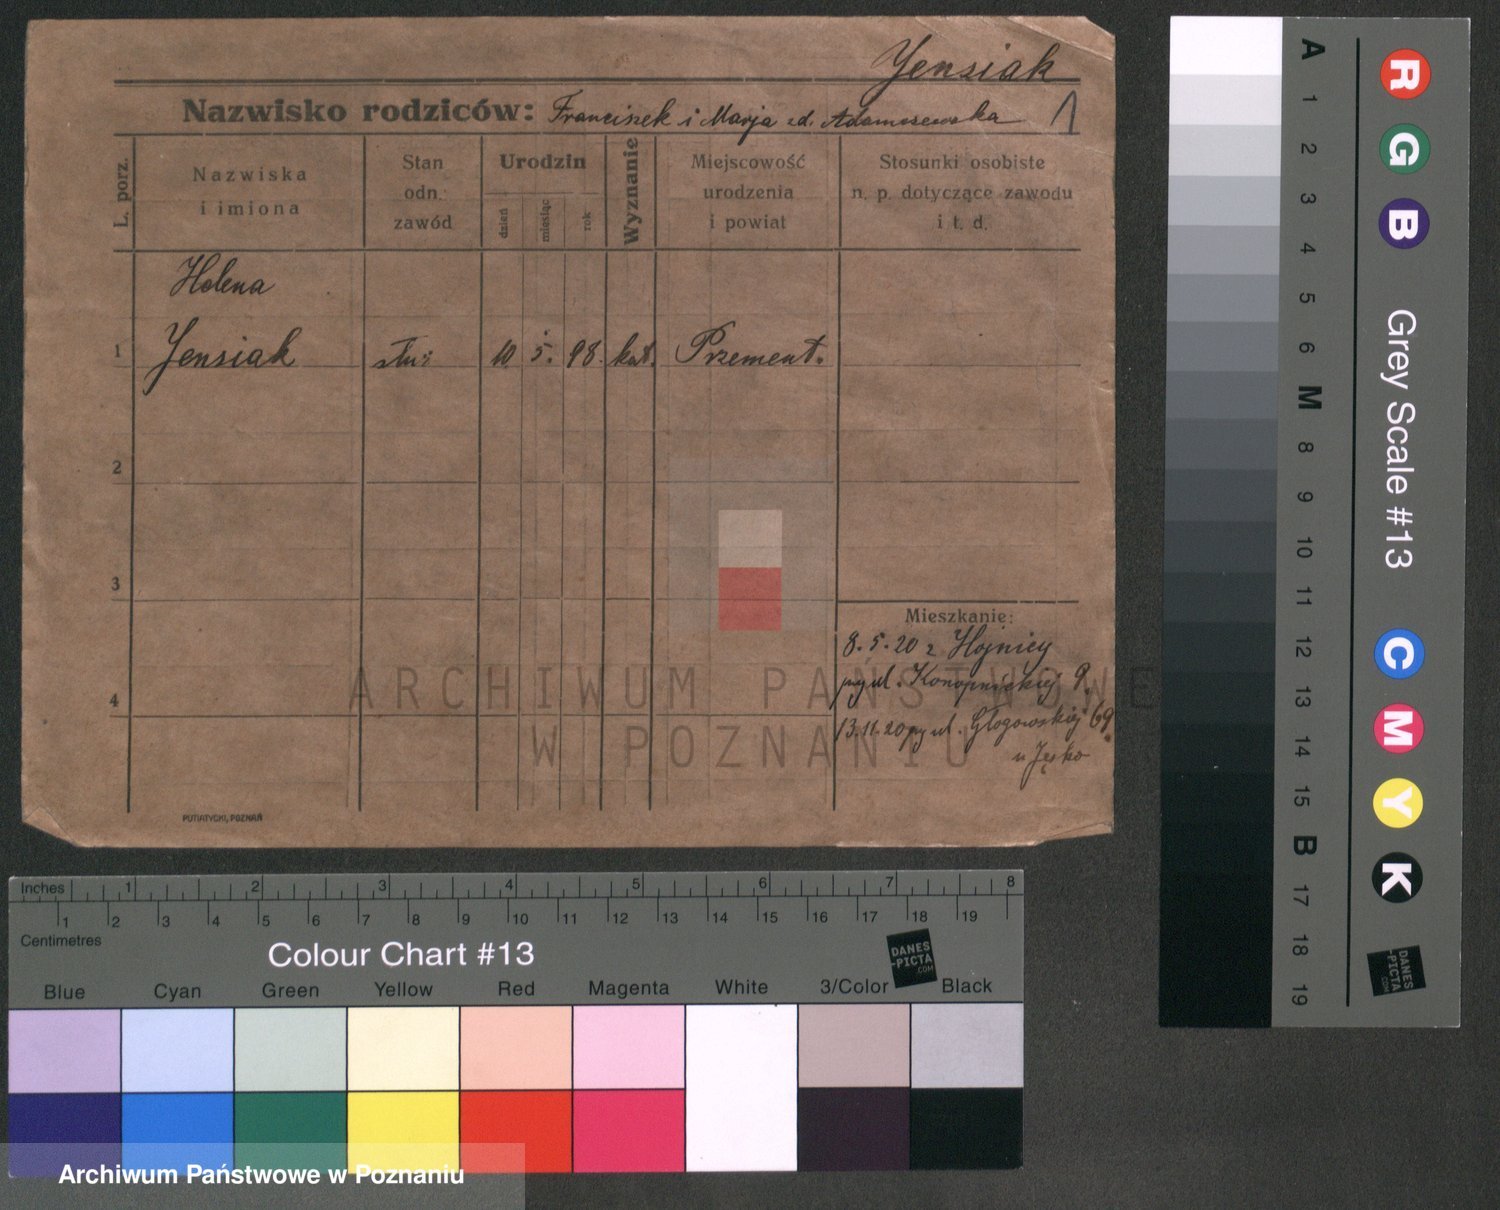 Jensiak
Nazwisko rodziców: Franciszek i Marja zd. Adamczewska 1
L. porz.
Nazwiska
i imiona
Stan
odn.
zawód
Urodzin
dzień
miesiąc
rok
Wyznanie
Miejscowość
urodzenia
i powiat
Stosunki osobiste
n. p. dotyczące zawodu
i t. d.
Helena
1 Jensiak służ 10 5. 98. kat. Przement.
2
3
4
Mieszkanie:
8.5.20 z
ul. Konopnickiej 9.
13.11.20 ul. Głogowskiej 69
u
PUTIATYCKI, POZNAŃ
ARCHIWUM PAŃSTWOWE
W POZNANIU
Inches 1 2 3 4 5 6 7 8
1 2 3 4 5 6 7 8 9 10 11 12 13 14 15 16 17 18 19
Centimetres
Colour Chart #13
DANES
-PICTA
.COM
Blue Cyan Green Yellow Red Magenta White 3/Color Black
Archiwum Państwowe w Poznaniu
A 1 2 3 4 5 6 M 8 9 10 11 12 13 14 15 B 17 18 19
R G B
Grey Scale #13
C M Y K
DANES
-PICTA
.COM